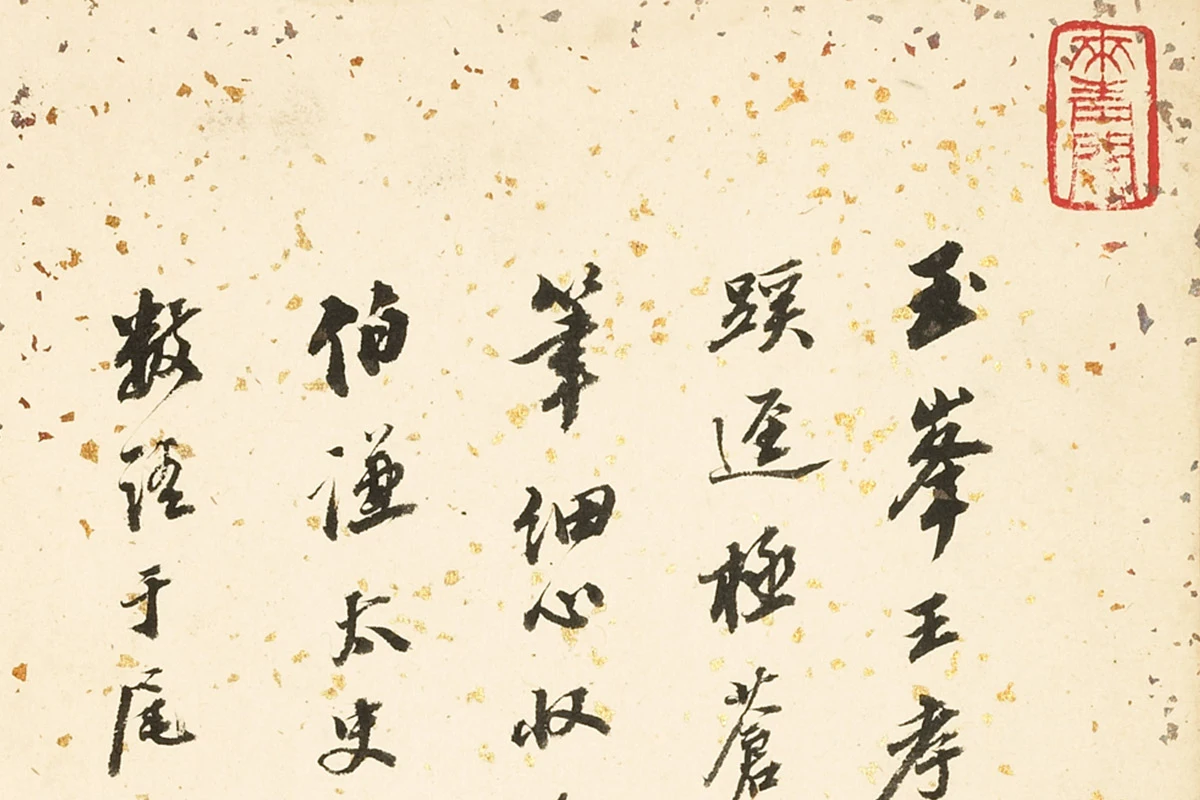 來青閣
玉峯王孝
蹊逕極蒼
筆細心收
伯謙太史
數語于尾